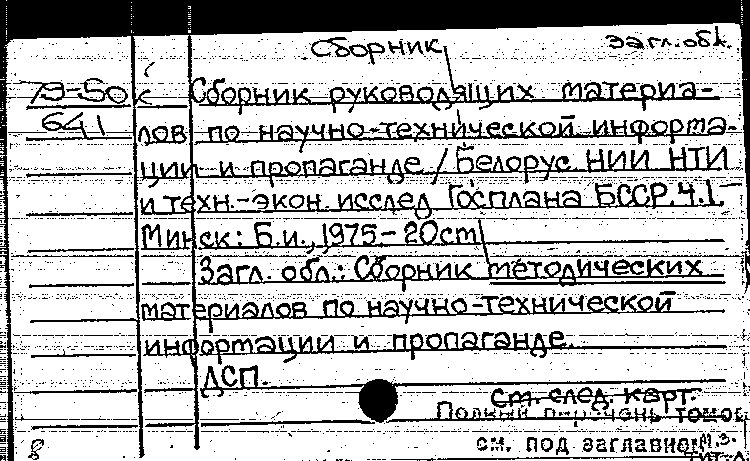 Сборник, загл. обл.
79-50 к Сборник руководящих материа-
641 лов по научно-технической информа-
ции и пропаганде / Белорус. НИИ НТИ
и техн.-экон. исслед. Госплана БССР. Ч.1.-
Минск: Б.и., 1975.- 20см
Загл. обл.: Сборник методических
материалов по научно-технической
информации и пропаганде.
ДСП.
См. след. карт.
Полный перечень томов
8 см. под заглавной